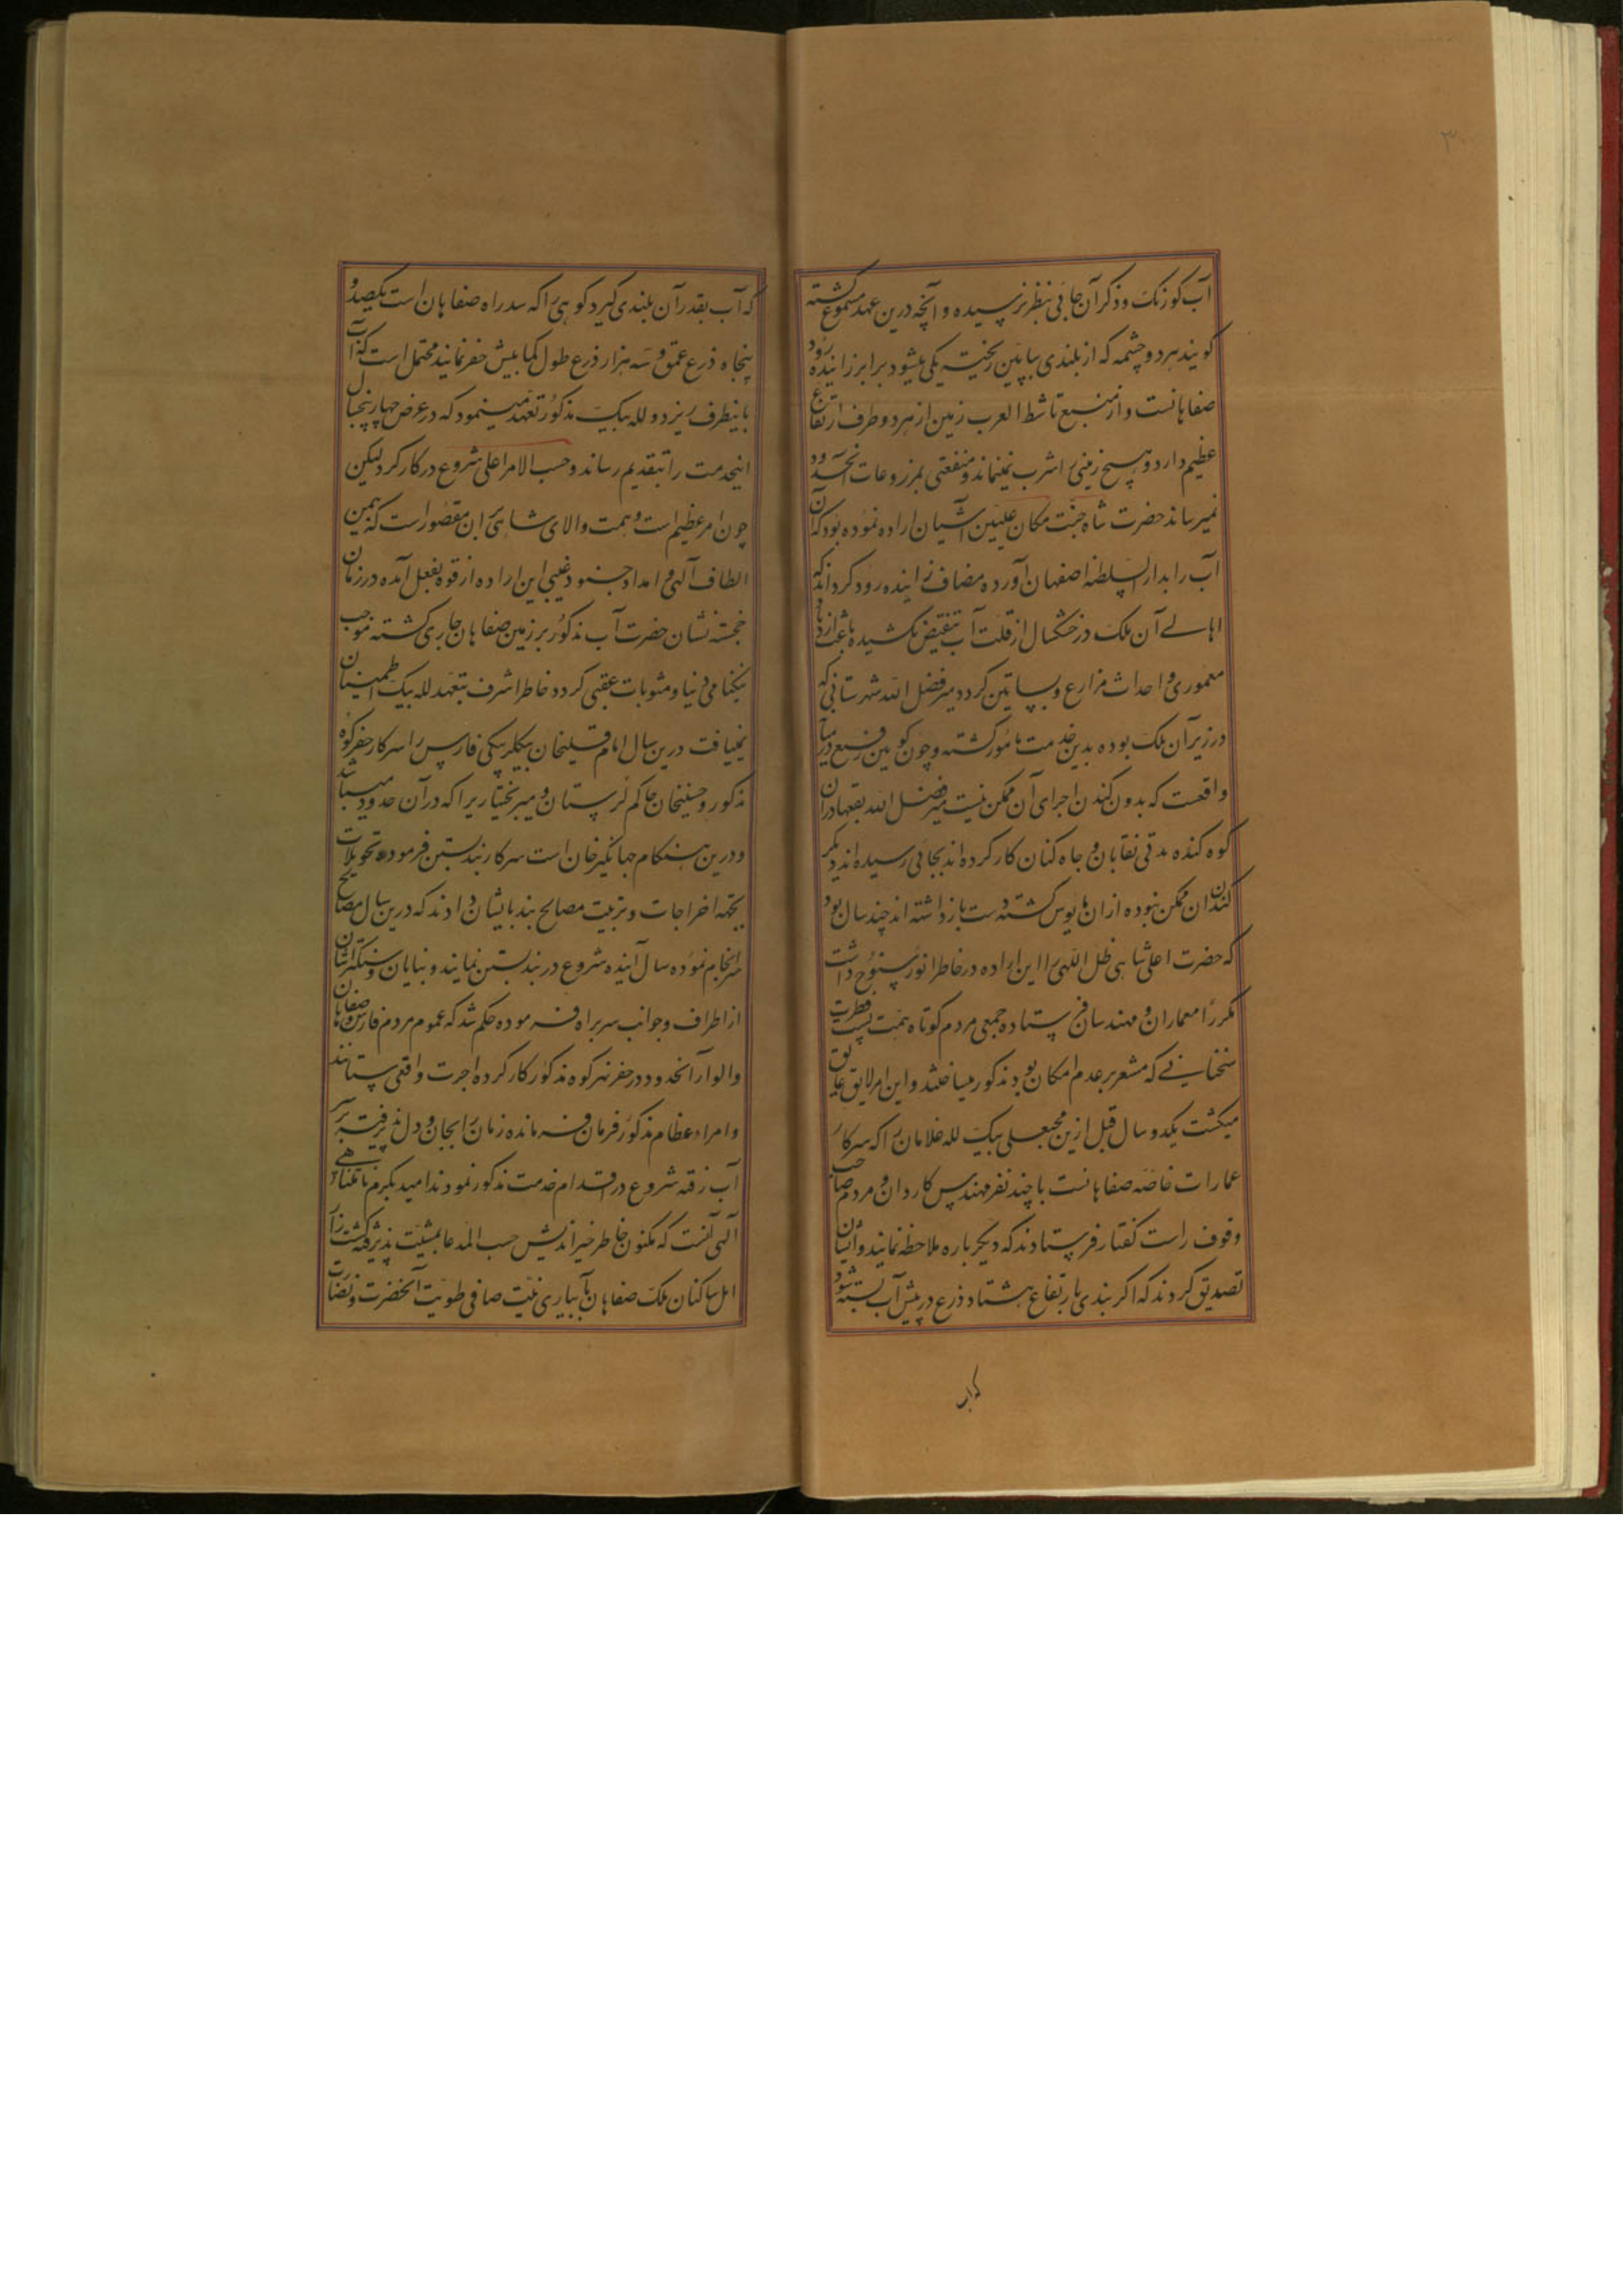 ۳۰
آب کوزنک وذکر آن جائی بنظر نرسیده و آنچه درین عهد مسموع کشته
کویند هر دو چشمه که از بلندی بپایین ریخته یکی میشود برابر زاینده رود
صفاهانست و از منبع تا شط العرب زمین از هر دو طرف ارتفاع
عظیم دارد و هیچ زمینی را شرب نمینماند و منفعتی بمزروعات آنحدود
نمیرساند حضرت شاه جنت مکان علیین آشیان اراده نموده بود که آن
آب را بدار السلطنه اصفهان آورده مضاف زاینده رود کرداند که
اهالے آن ملک در خشکسال از قلت آب تنقیض نکشیده باعث ازدیاد
معموری و احداث مزارع و بساتین کردد میر فضل الله شهرستانی که
در زیر آن ملک بوده بدین خدمت مامور کشته و چون کوهی رفیع در میان
واقعست که بدون کندن اجرای آن ممکن نیست میر فضل الله بقعهادران
کوه کنده مدتی نقابان و چاه کنان کار کرده اند بجائی رسیده اند دیکر
کندن ان ممکن نبوده از ان مایوس کشته دست باز داشته اند چند سال بود
که حضرت اعلی شاهی ظل اللهی را این اراده در خاطر انور سنوح داشت
مکررا معماران و مهندسان فرستاده جمعی مردم کوتاه همت پست فطرت
سخنانے که مشعر بر عدم امکان بود مذکور میساختند و این امر لایق عایق
میکشت یکدو سال قبل ازین محبعلی بیک لله غلامان را که سرکار
عمارات خاصه صفاهانست با چند نفر مهندس کاردان و مردم صاحب
وقوف راست کفتار فرستادند که دیکر باره ملاحظه نمایند و ایشان
تصدیق کردند که اکر بندی بارتفاع هشتاد ذرع در پیش آب بسته شود
که آب
که آب بقدر آن بلندی کیرد کوهی را که سد راه صفاهان است یکصد و
پنجاه ذرع عمق و سه هزار ذرع طول کمابیش حفر نمایند محتمل است که آب
باینطرف ریزد و لله بیک مذکور تعهد مینمود که در عرض چهار پنجسال
اینخدمت را بتقدیم رساند و حسب الامر اعلی شروع در کار کرد لیکن
چون امر عظیم است و همت والای شاهی بر ان مقصور است که بیمن
الطاف آلهی و امداد جنود غیبی این اراده از قوه بفعل آمده در زمان
خجسته نشان حضرت آب مذکور بر زمین صفاهان جاری کشته موجب
نیکنامی دنیا و مثوبات عقبی کردد خاطر اشرف بتعهد لله بیک اطمینان
نمییافت درین سال امام قلیخان بیکلربیکی فارس را سرکار حفر کوه
مذکور و حسینخان حاکم لرستان و میر بختیاری را که در آن حدود میباشد
و درین هنکام جهانکیر خان است سرکار بند بستن فرموده تحویلات
بجهة اخراجات و تربیت مصالح بند بایشان دادند که درین سال مصالح
سرانجام نموده سال آینده شروع در بند بستن نمایند و بنایان و سنکتراشان
از اطراف و جوانب سر براه فرموده حکم شد که عموم مردم فارس و صفاهان
و الوار آنحدود در حفر نهر کوه مذکور کار کرده اجرت واقعی ستانند
و امراء عظام مذکور فرمان فرمانده زمان را بجان و دل پذیرفته بر سر
آب رفته شروع در اقدام خدمت مذکور نمودند امید بکرم نامتناهے
آلهی آنست که مکنون خاطر خیر اندیش حسب المدعا بمشیت پذیرفته کشت زار
امل ساکنان ملک صفاهان بآبیاری نیت صافی طویت آنحضرت و نضارت